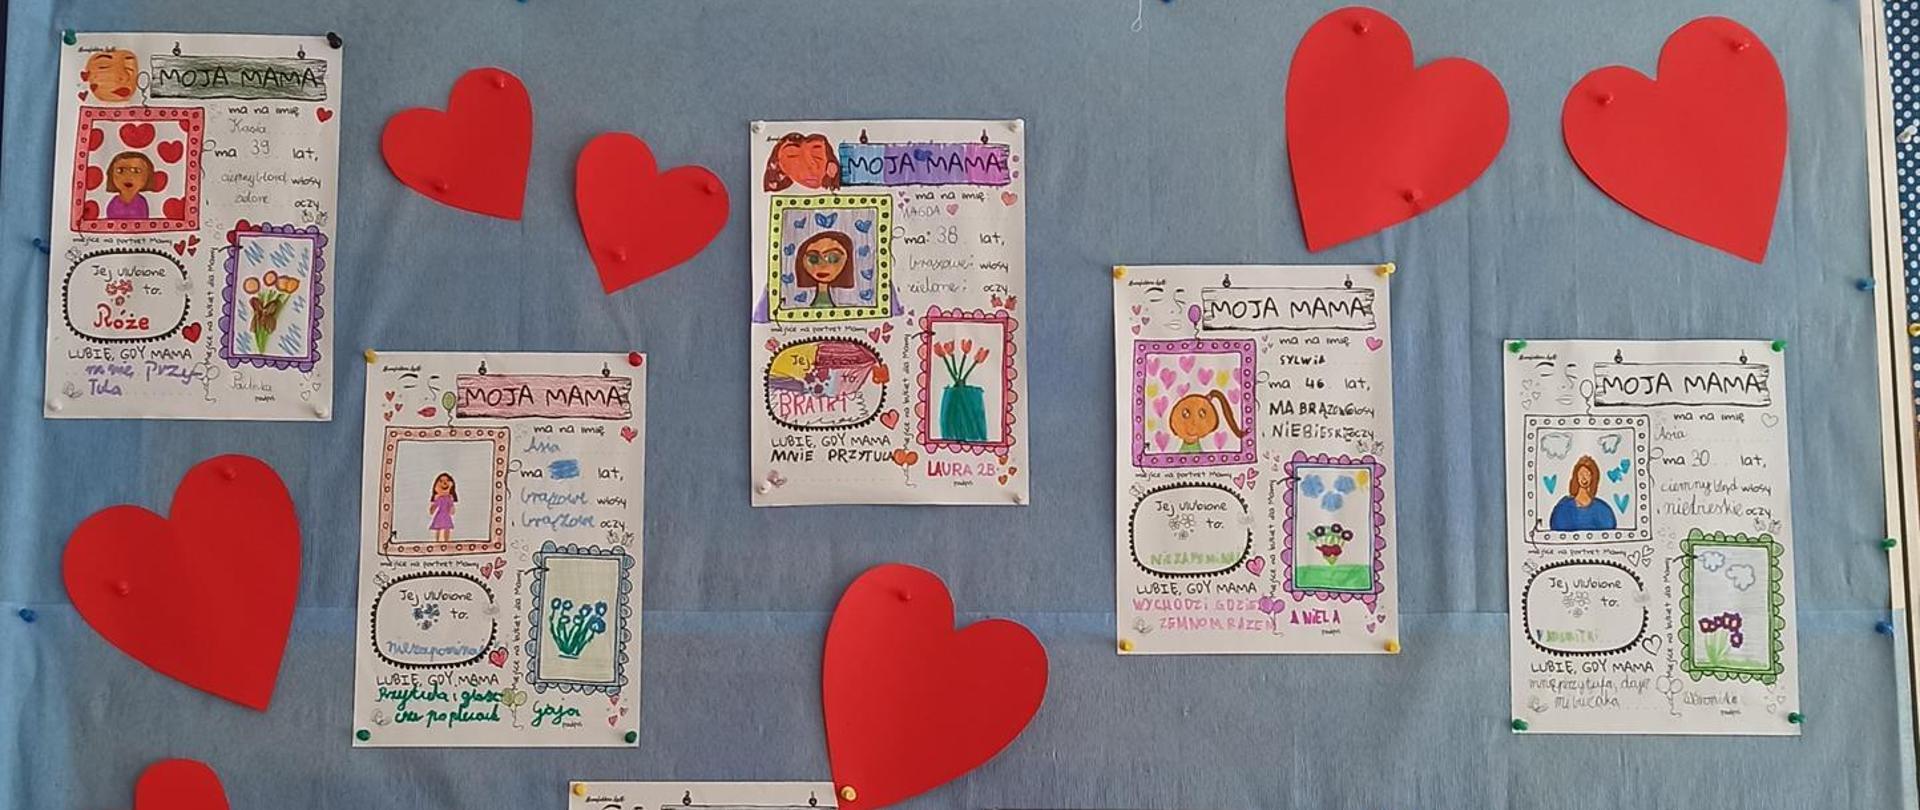 MOJA MAMA
ma na imię
Kasia
ma 39 lat,
ciemny blond włosy
zielone oczy
miejsce na portret Mamy
Jej ulubione
to:
Róże
miejsce na bukiet dla Mamy
LUBIĘ, GDY MAMA
mnie przy-
tula
Paulinka
podpis
MOJA MAMA
ma na imię
Asia
ma lat,
brązowe włosy
brązowe oczy
miejsce na portret Mamy
Jej ulubione
to:
niezapomina
miejsce na bukiet dla Mamy
LUBIĘ, GDY MAMA
Przytula i głasz
cze po plecach
Gaja
podpis
MOJA MAMA
ma na imię
MAGDA
ma: 38 lat,
brązowe: włosy
zielone: oczy
miejsce na portret Mamy
Jej
to:
BRATKI
miejsce na bukiet dla Mamy
LUBIĘ, GDY MAMA
MNIE PRZYTULA
LAURA 2B
podpis
MOJA MAMA
ma na imię
SYLWIA
ma 46 lat,
MA BRĄZOWE włosy
NIEBIESKIE oczy
miejsce na portret Mamy
Jej ulubione
to:
NIEZAPOMINA
miejsce na bukiet dla Mamy
LUBIĘ, GDY MAMA
WYCHODZI GDZIEŚ
ZEMNOM RAZEM
ANIELA
podpis
MOJA MAMA
ma na imię
Asia
ma 30 lat,
ciemny blqd włosy
niebieskie oczy
miejsce na portret Mamy
Jej ulubione
to:
miejsce na bukiet dla Mamy
LUBIĘ, GDY MAMA
mnie przytula, daje
mi buziaka
Weronika
podpis